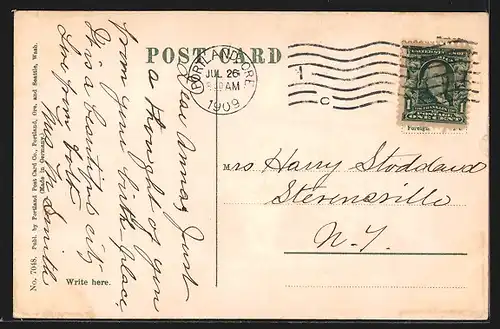 POST CARD
PORTLAND, ORE.
JUL 26
AM
1909
1
C
ONE CENT
Foreign
Dear Anna, Just
a thought of you
from your birth place
It is a beautiful city
Love from
Mrs Smith
Mrs Harry Stoddard
Stevensville
N. Y.
Write here.
No. 7048. Publ. by Portland Post Card Co., Portland, Ore. and Seattle, Wash.
(Made in Germany)